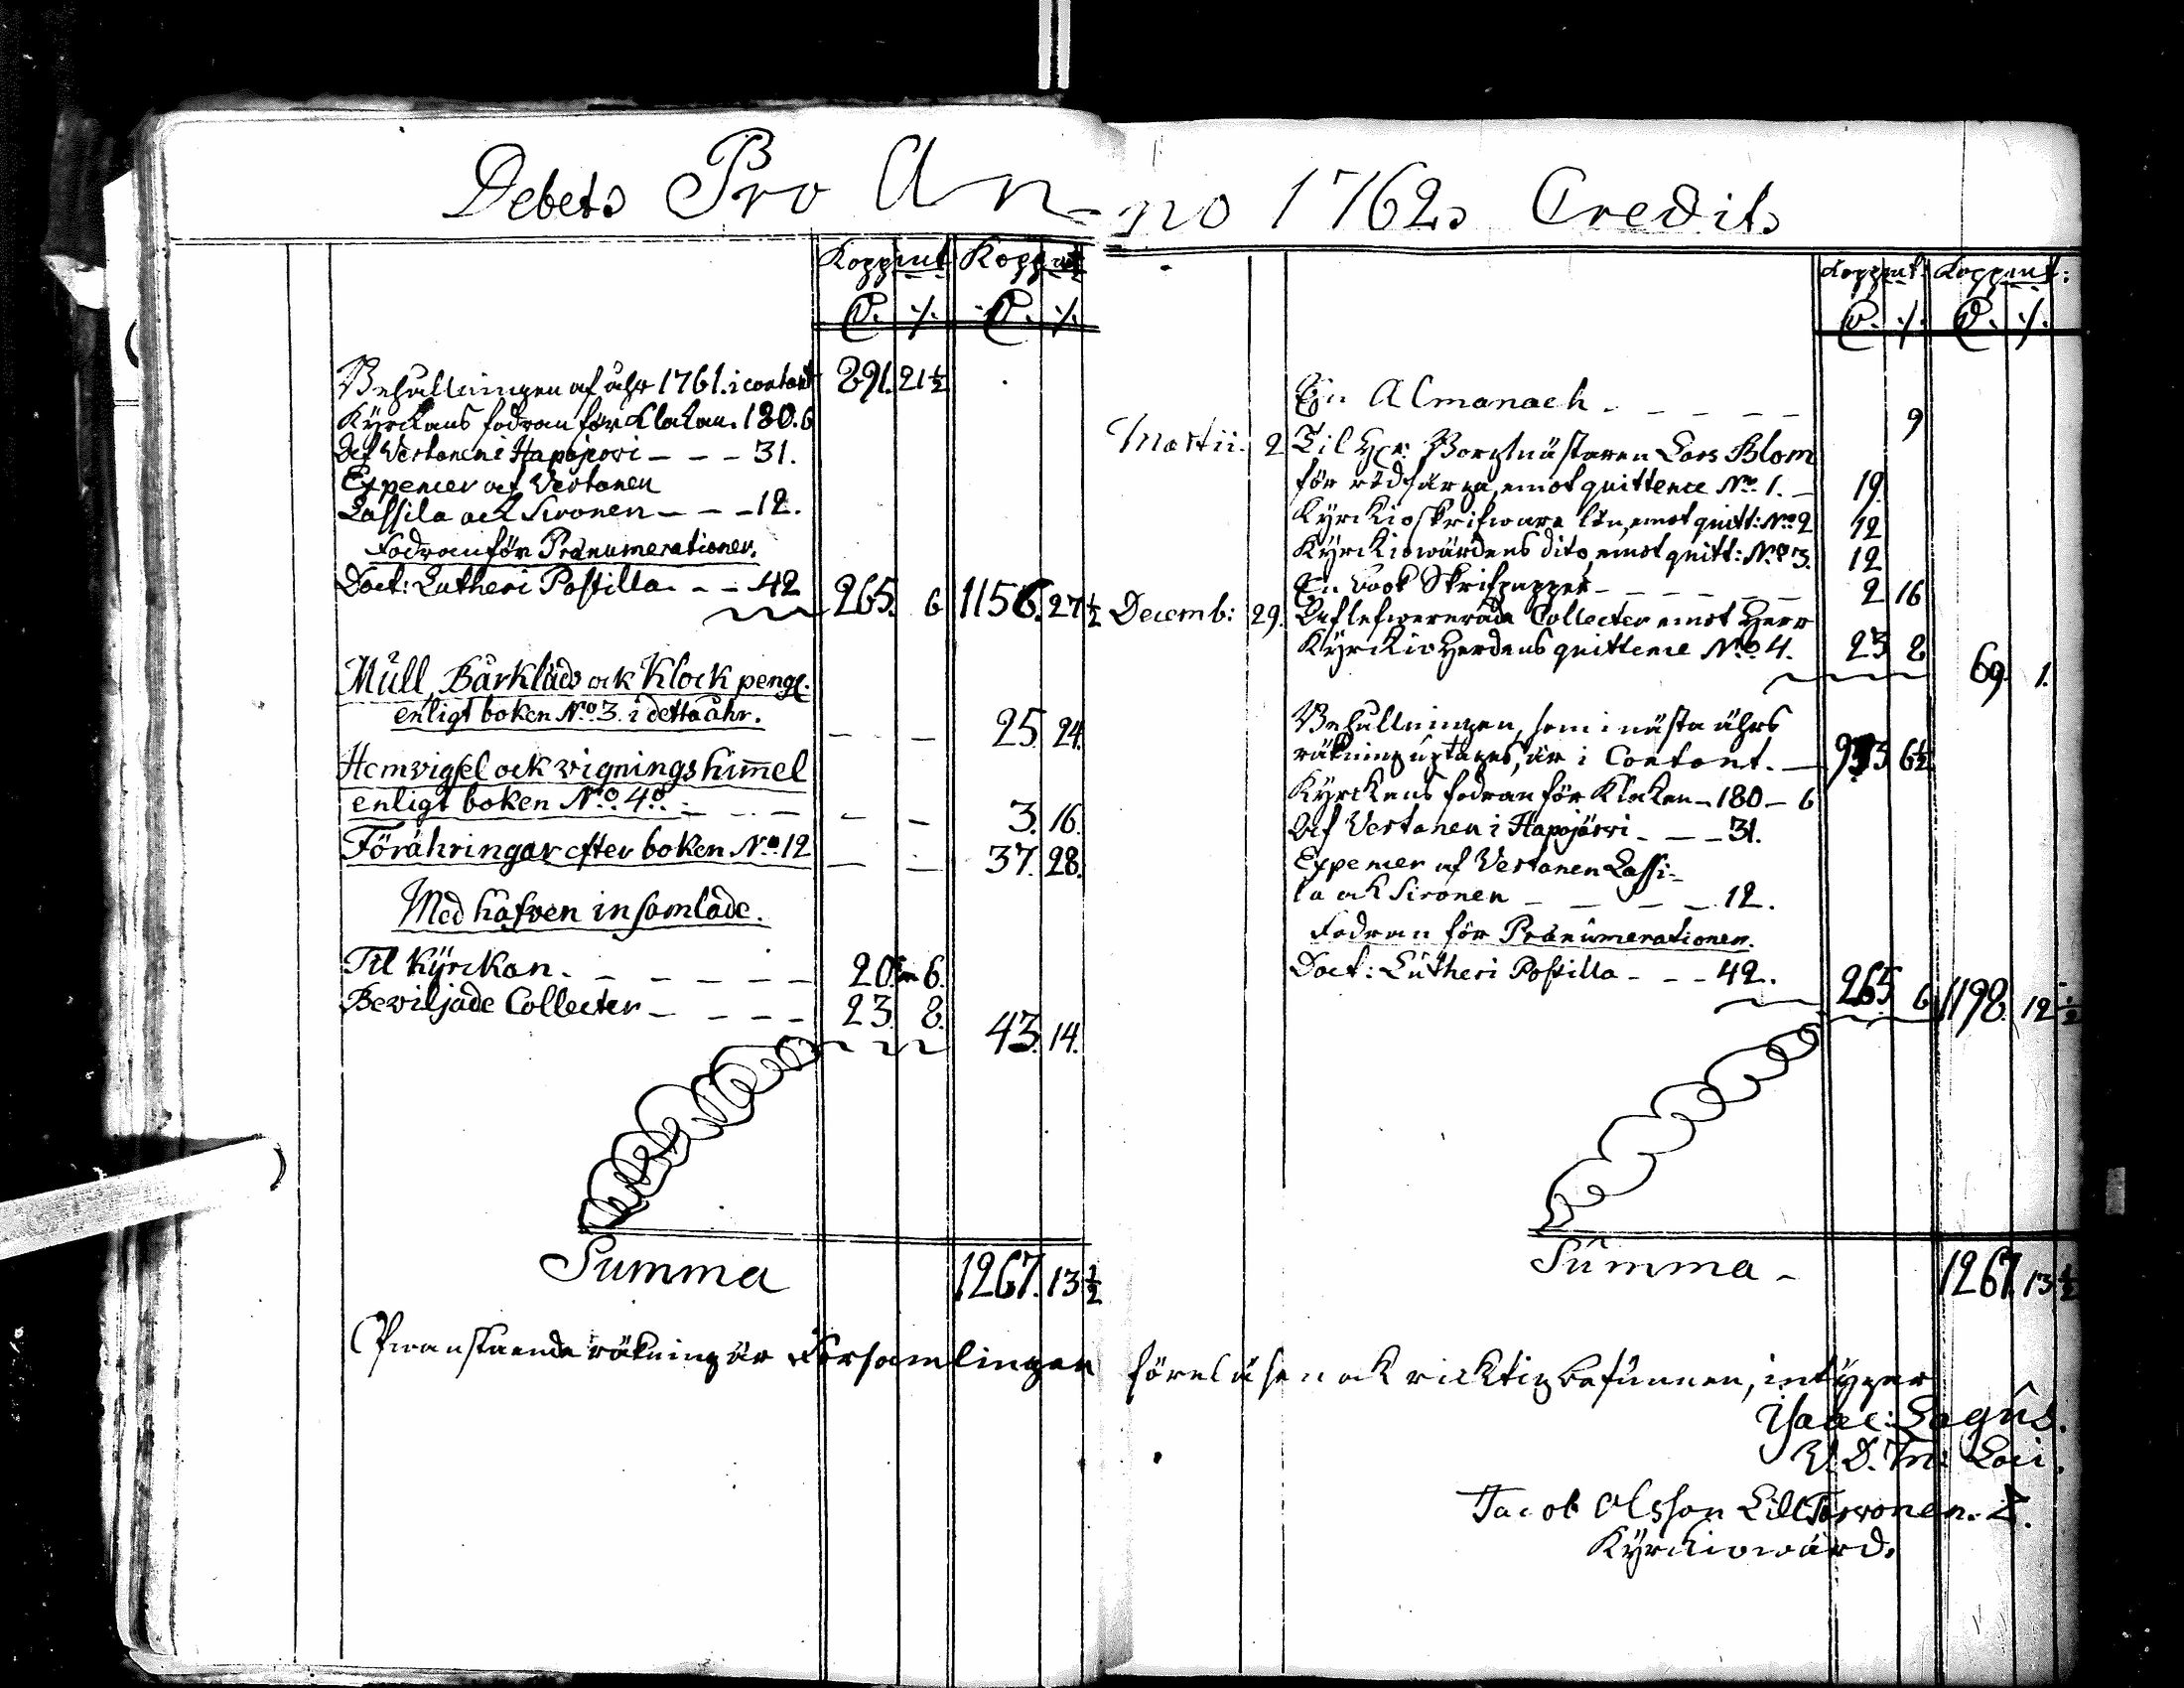 Debets Pro An-
Koppmt Koppmt
D. ./. D. ./.
Behållningen af åhr 1761. i contant 891. 21½
Kyrckans fodran för Klockan. 180. 6
Af Vertanen i Hapajervi - - - 31.
Expencer af Vertanen
Lassila ock Sironen - - - 12.
Fodran för Prænumerationer.
Doct: Lutheri Postilla. - - 42 265. 6 1156. 27½
Mull, Bårkläds ock Klock peng.
enligt boken No. 3. i detta åhr. - - 25. 24.
Hemvigsel ock vignings himmel
enligt boken No. 4o. - - - - 3. 16.
Förähringar efter boken No. 12 - - 37. 28.
Med håfven insamlade.
Til Kyrckan. - - - - - 20. 6.
Beviljade Collecter - - - - 23. 8. 43. 14.
Summa 1267. 13½
Ofvanstaende räkning är Församlingen
no 1762. Credit.
Koppmt: Koppmt:
D. ./. D. ./.
En Almanach. - - - - 9
Martii. 2 Til Hr. Borgmästaren Lars Blom
för rödfärga, emot quittence No. 1. - 19.
Kyrckioskrifware lön, emot quitt: No. 2 12
Kyrckiowärdens dito, emot quitt: No. 3. 12
En book Skrifpapper - - - - 2 16
Decemb: 29. Aflefwererade Collecter emot Herr
Kyrckio Herdens quittence No. 4. 23 8 69. 1.
Behållningen, som i nästa åhrs
räkning uptages, är i Contant. - 933 6½
Kyrckans fodran för Klockan - 180 - 6
Af Vertanen i Hapajärvi - - - 31.
Expencer af Vertanen Lassi-
la ock Sironen - - - - 12.
Fodran för Prænumerationer.
Doct: Lutheri Postilla - - - 42. 265 6 1198. 12½
Summa - 1267. 13½
föreläsen ock ricktig befunnen, intygar
Isaac: Lagus.
V. D. M: Loci.
Jacob Olsson Lill Torvonen.
Kyrckiowärd.